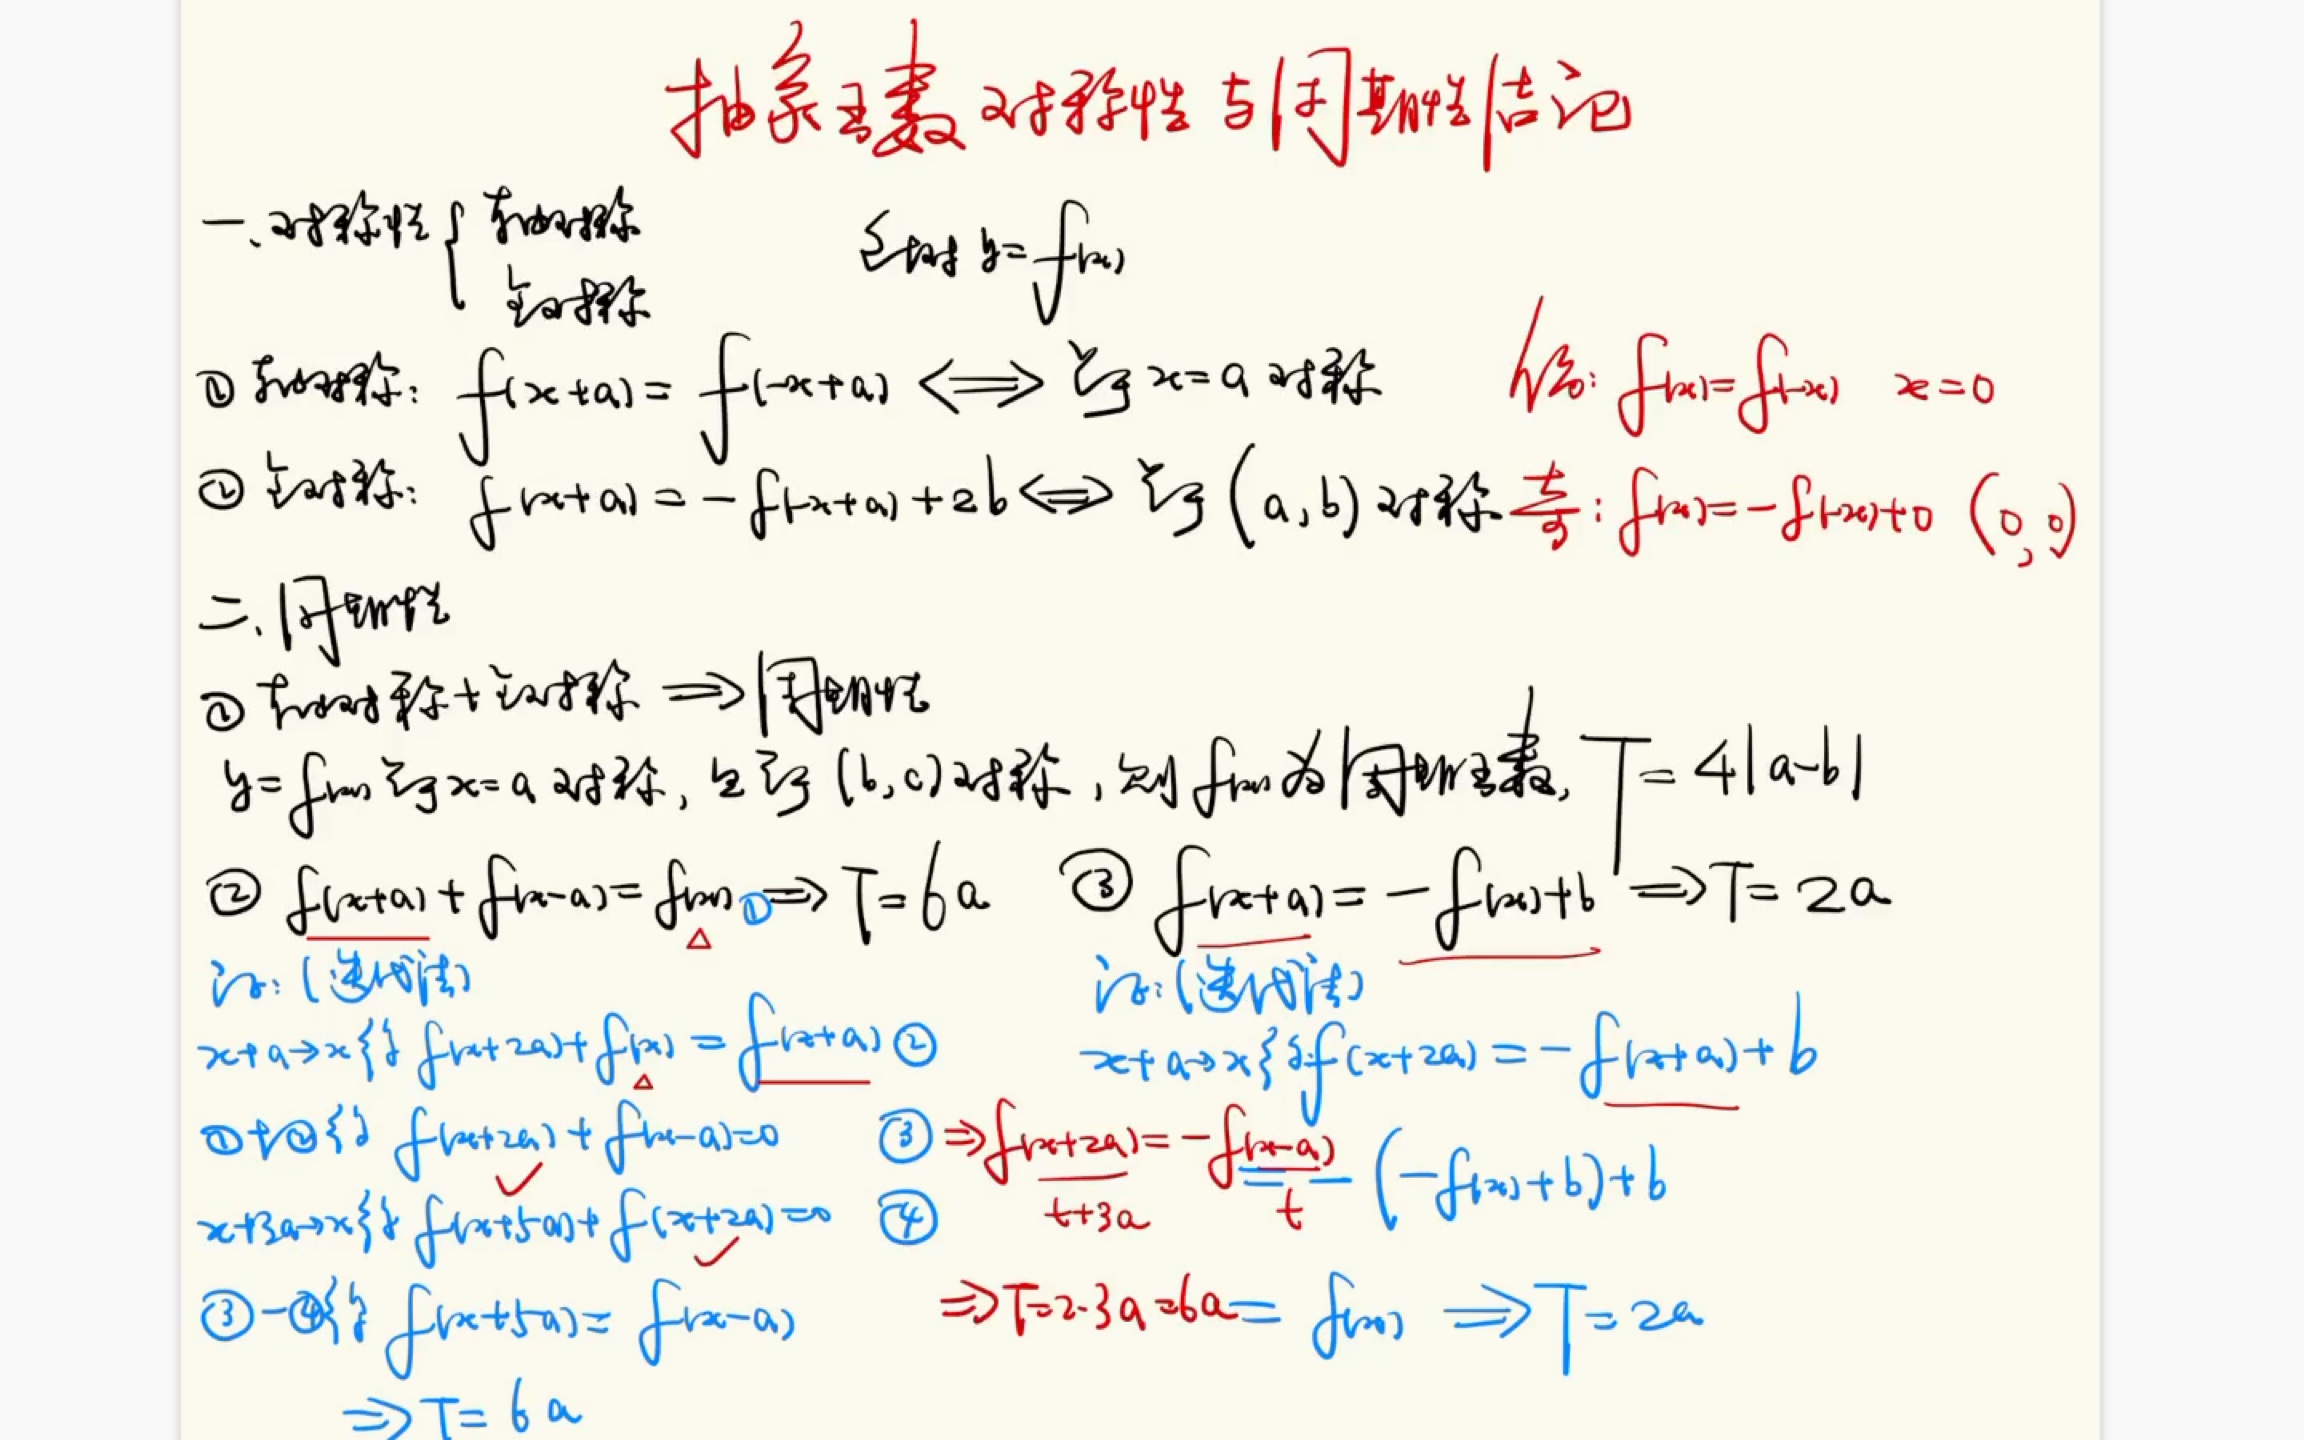 抽象函数对称性与周期性结论
一、对称性{轴对称
点对称
针对 y=f(x)
① 轴对称: f(x+a)=f(-x+a) ⟺ 关于 x=a 对称
偶: f(x)=f(-x) x=0
② 点对称: f(x+a)=-f(-x+a)+2b ⟺ 关于 (a,b) 对称
奇: f(x)=-f(-x)+0 (0,0)
二、周期性
① 轴对称+点对称 ⟹ 周期性
y=f(x) 关于 x=a 对称, 且关于 (b,c) 对称, 则 f(x) 为周期函数, T=4|a-b|
② f(x+a)+f(x-a)=f(x) ① ⟹ T=6a
△
证:(迭代法)
x+a→x得 f(x+2a)+f(x)=f(x+a) ②
△
①+②得 f(x+2a)+f(x-a)=0 ③
⟹f(x+2a)=-f(x-a)
t+3a t
x+3a→x得 f(x+5a)+f(x+2a)=0 ④
③-④得 f(x+5a)=f(x-a)
⟹T=2·3a=6a
⟹T=6a
③ f(x+a)=-f(x)+b ⟹ T=2a
证:(迭代法)
x+a→x得 f(x+2a)=-f(x+a)+b
=-(-f(x)+b)+b
=f(x) ⟹ T=2a